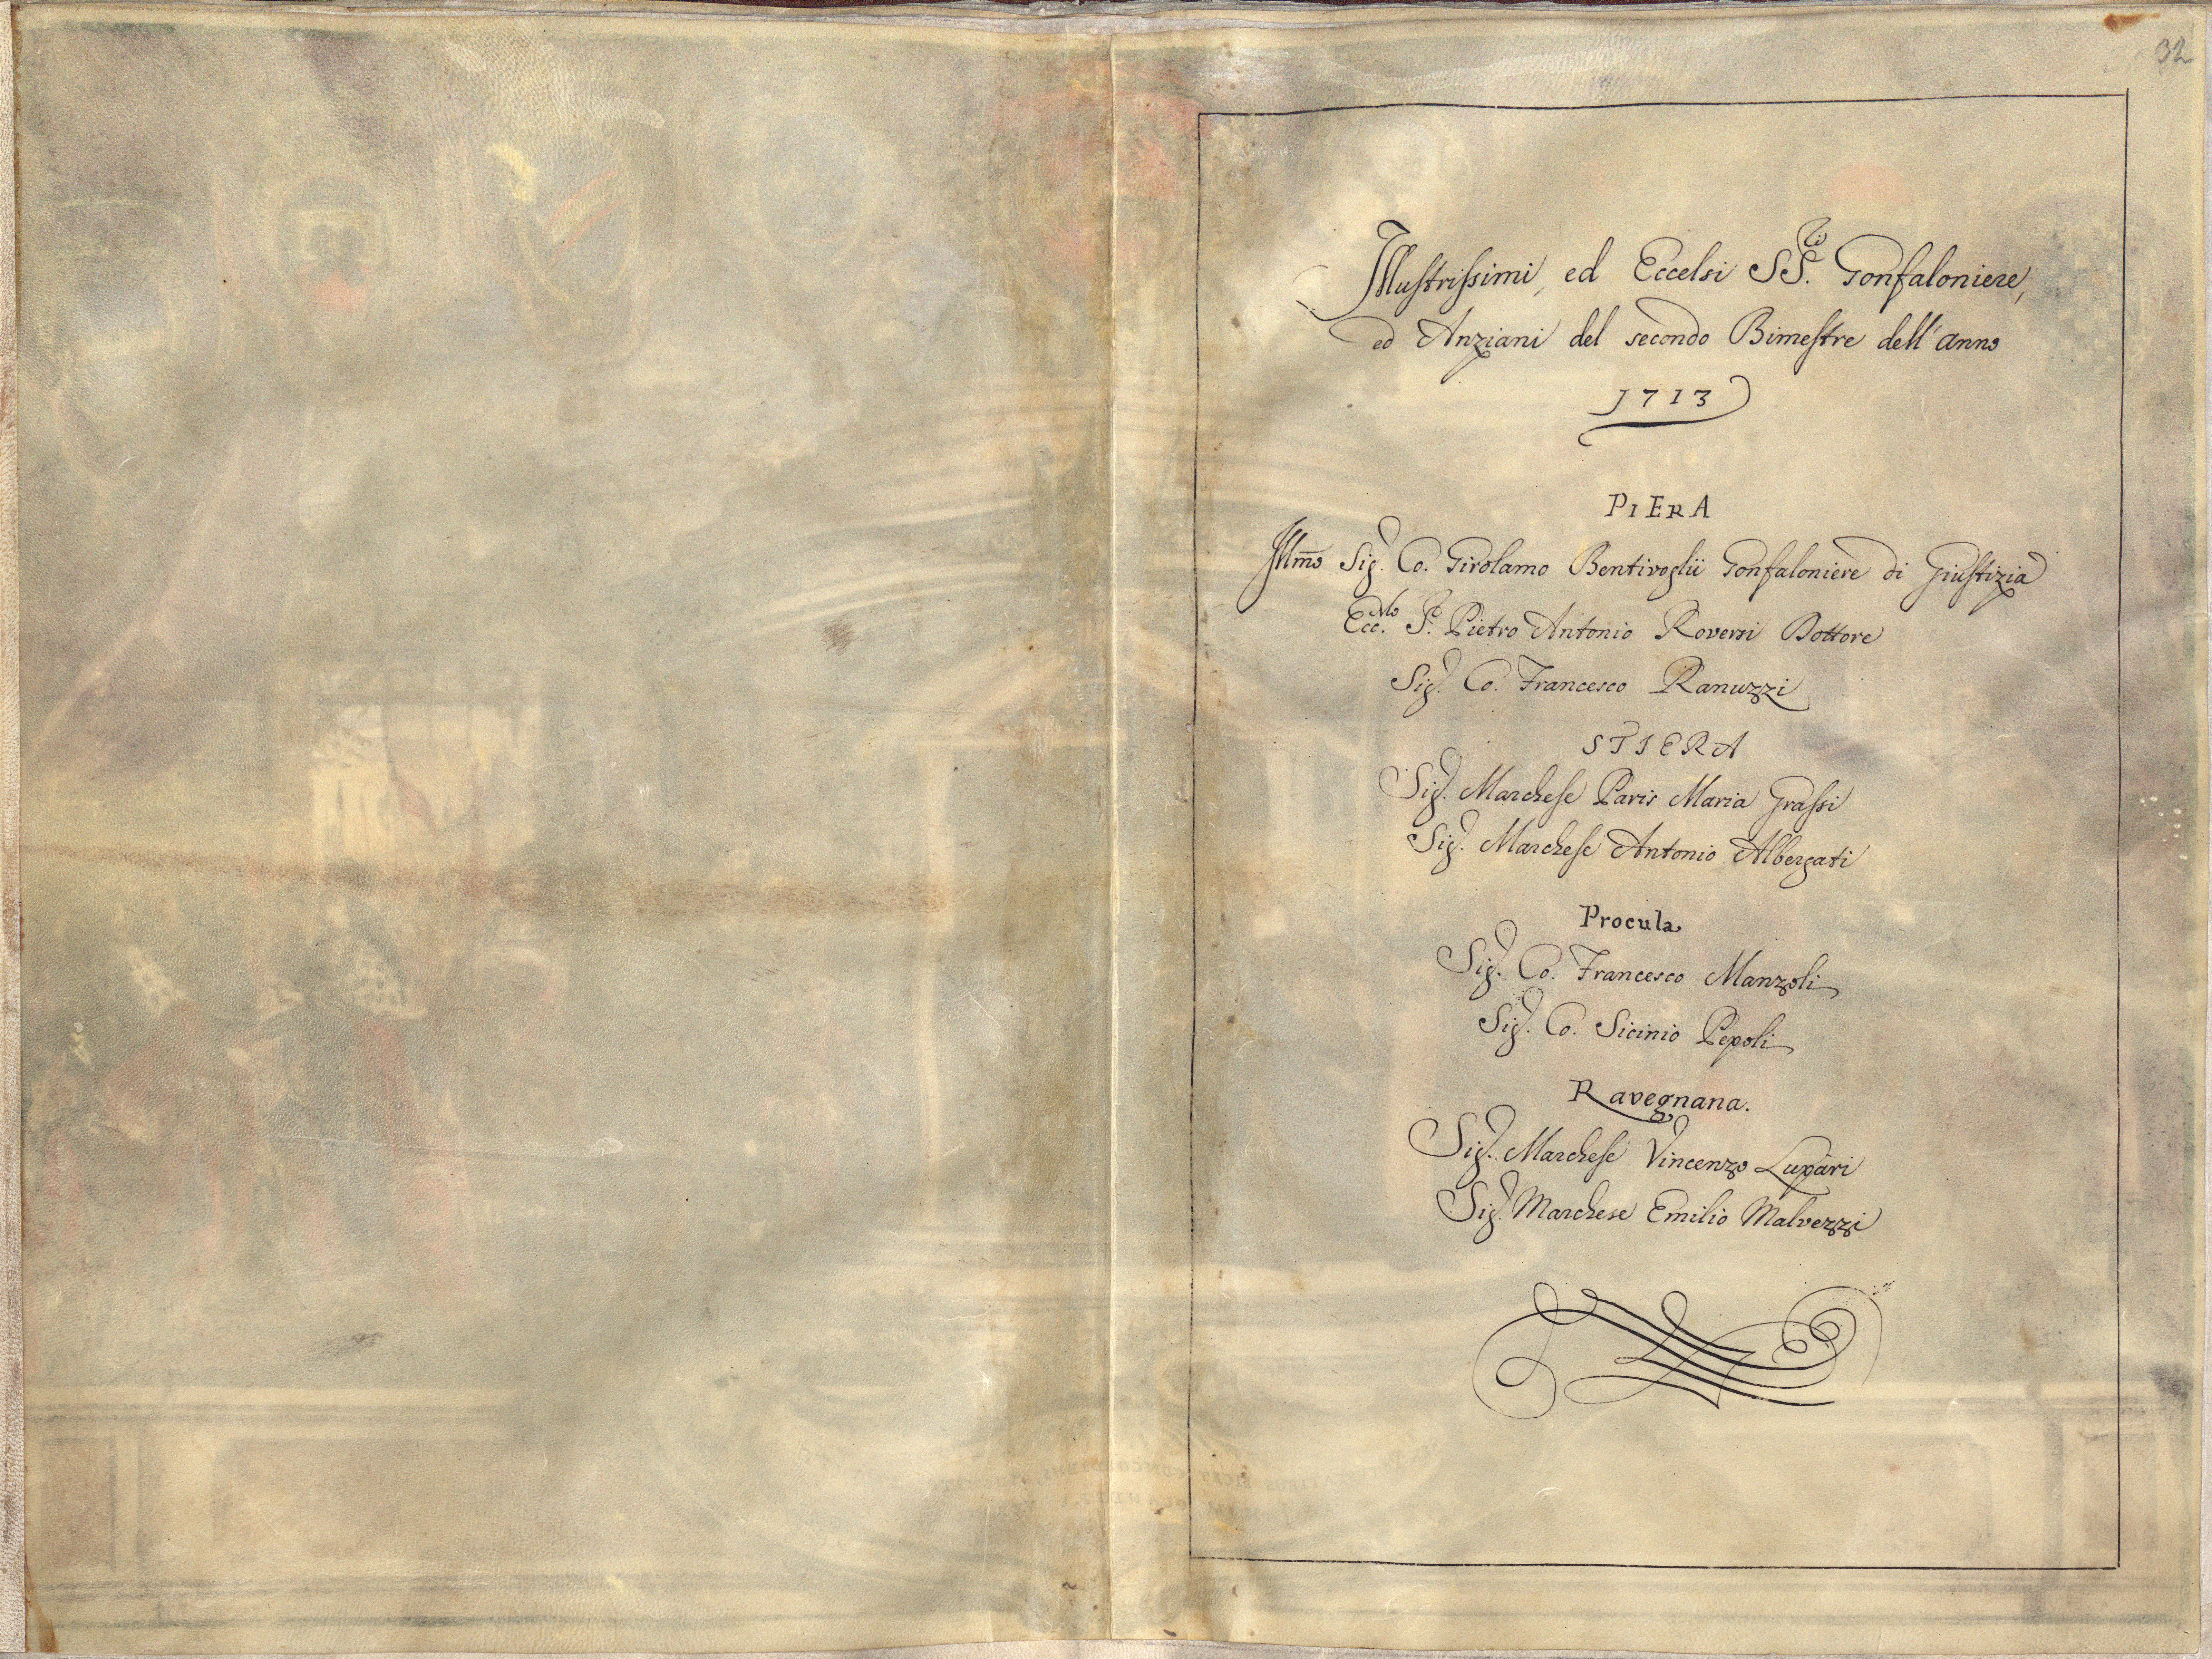 32
Illustrissimi, ed Eccelsi SS.ri Gonfaloniere,
ed Anziani del secondo Bimestre dell'anno
1713
PIERA
Illmo Sig.r Co. Girolamo Bentivoglii Gonfaloniere di Giustizia
Ecc.mo S.r Pietro Antonio Roversi Dottore
Sig.r Co. Francesco Ranuzzi
STIERA
Sig.r Marchese Paris Maria Grassi
Sig.r Marchese Antonio Albergati
Procula
Sig.r Co. Francesco Manzoli
Sig.r Co. Sicinio Pepoli
Ravegnana.
Sig.r Marchese Vincenzo Lupari
Sig.r Marchese Emilio Malvezzi